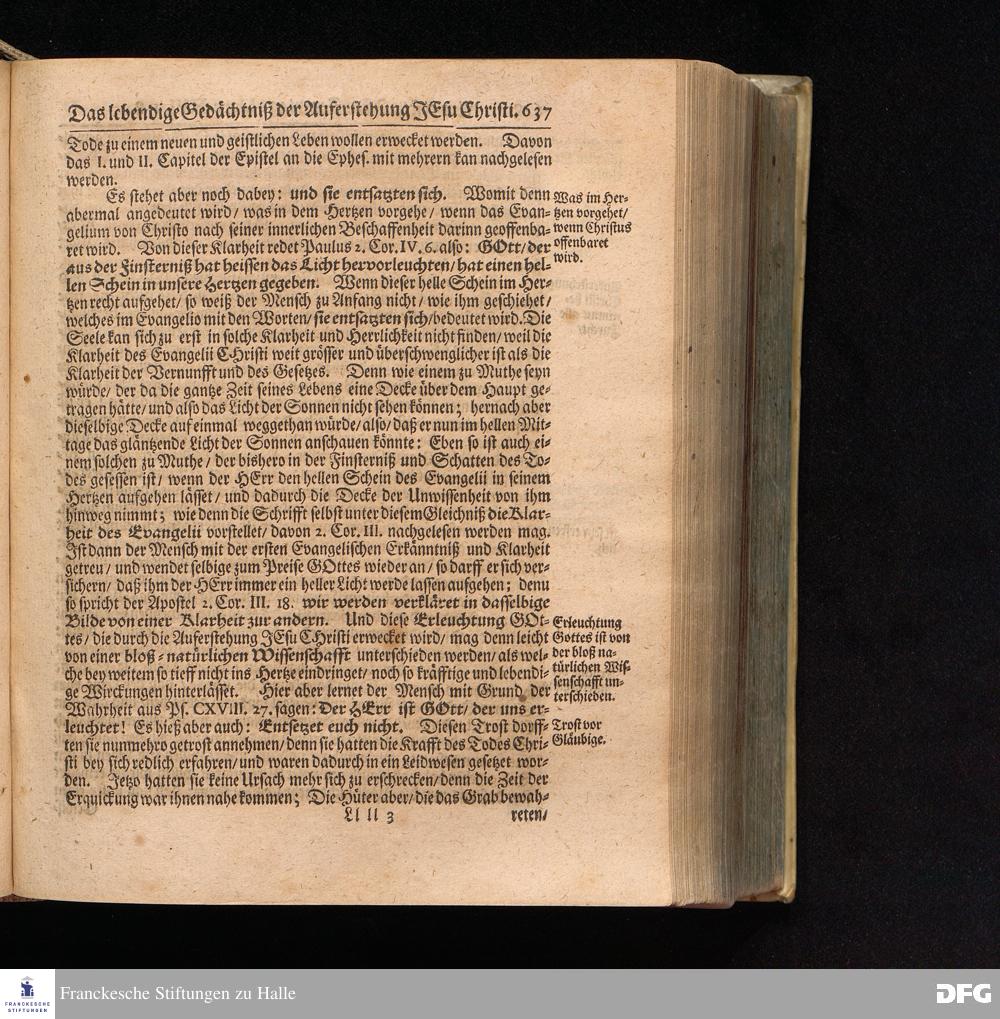 Das lebendige Gedächtniß der Auferstehung JEsu Christi. 637
Tode zu einem neuen und geistlichen Leben wollen erwecket werden. Davon
das I. und II. Capitel der Epistel an die Ephes. mit mehrern kan nachgelesen
werden.
Es stehet aber noch dabey: und sie entsatzten sich. Womit denn
abermal angedeutet wird/ was in dem Hertzen vorgehe/ wenn das Evan-
gelium von Christo nach seiner innerlichen Beschaffenheit darinn geoffenba-
ret wird. Von dieser Klarheit redet Paulus 2. Cor. IV. 6. also: GOtt/ der
aus der Finsterniß hat heissen das Licht hervorleuchten/ hat einen hel-
len Schein in unsere Hertzen gegeben. Wenn dieser helle Schein im Her-
tzen recht aufgehet/ so weiß der Mensch zu Anfang nicht/ wie ihm geschiehet/
welches im Evangelio mit den Worten/ sie entsatzten sich/ bedeutet wird. Die
Seele kan sich zu erst in solche Klarheit und Herrlichkeit nicht finden/ weil die
Klarheit des Evangelii CHristi weit grösser und überschwenglicher ist als die
Klarheit der Vernunfft und des Gesetzes. Denn wie einem zu Muthe seyn
würde/ der da die gantze Zeit seines Lebens eine Decke über dem Haupt ge-
tragen hätte/ und also das Licht der Sonnen nicht sehen können; hernach aber
dieselbige Decke auf einmal weggethan würde/ also/ daß er nun im hellen Mit-
tage das gläntzende Licht der Sonnen anschauen könnte: Eben so ist auch ei-
nem solchen zu Muthe/ der bishero in der Finsterniß und Schatten des To-
des gesessen ist/ wenn der HErr den hellen Schein des Evangelii in seinem
Hertzen aufgehen lässet/ und dadurch die Decke der Unwissenheit von ihm
hinweg nimmt; wie denn die Schrifft selbst unter diesem Gleichniß die Klar-
heit des Evangelii vorstellet/ davon 2. Cor. III. nachgelesen werden mag.
Ist dann der Mensch mit der ersten Evangelischen Erkänntniß und Klarheit
getreu/ und wendet selbige zum Preise GOttes wieder an/ so darff er sich ver-
sichern/ daß ihm der HErr immer ein heller Licht werde lassen aufgehen; denn
so spricht der Apostel 2. Cor. III. 18. wir werden verkläret in dasselbige
Bilde von einer Klarheit zur andern. Und diese Erleuchtung GOt-
tes/ die durch die Auferstehung JEsu CHristi erwecket wird/ mag denn leicht
von einer bloß-natürlichen Wissenschafft unterschieden werden/ als wel-
che bey weitem so tieff nicht ins Hertze eindringet/ noch so kräfftige und lebendi-
ge Wirckungen hinterlässet. Hier aber lernet der Mensch mit Grund der
Wahrheit aus Ps. CXVIII. 27. sagen: Der HErr ist GOtt/ der uns er-
leuchtet! Es hieß aber auch: Entsetzet euch nicht. Diesen Trost dorff-
ten sie nunmehro getrost annehmen/ denn sie hatten die Krafft des Todes Chri-
sti bey sich redlich erfahren/ und waren dadurch in ein Leidwesen gesetzet wor-
den. Jetzo hatten sie keine Ursach mehr sich zu erschrecken/ denn die Zeit der
Erquickung war ihnen nahe kommen; Die Hüter aber/ die das Grab bewah-
Ll ll 3 reten/
Was im Her-
tzen vorgehet/
wenn Christus
offenbaret
wird.
Erleuchtung
Gottes ist von
der bloß na-
türlichen Wis-
senschafft un-
terschieden.
Trost vor
Gläubige.
FRANCKESCHE
STIFTUNGEN
Franckesche Stiftungen zu Halle
DFG